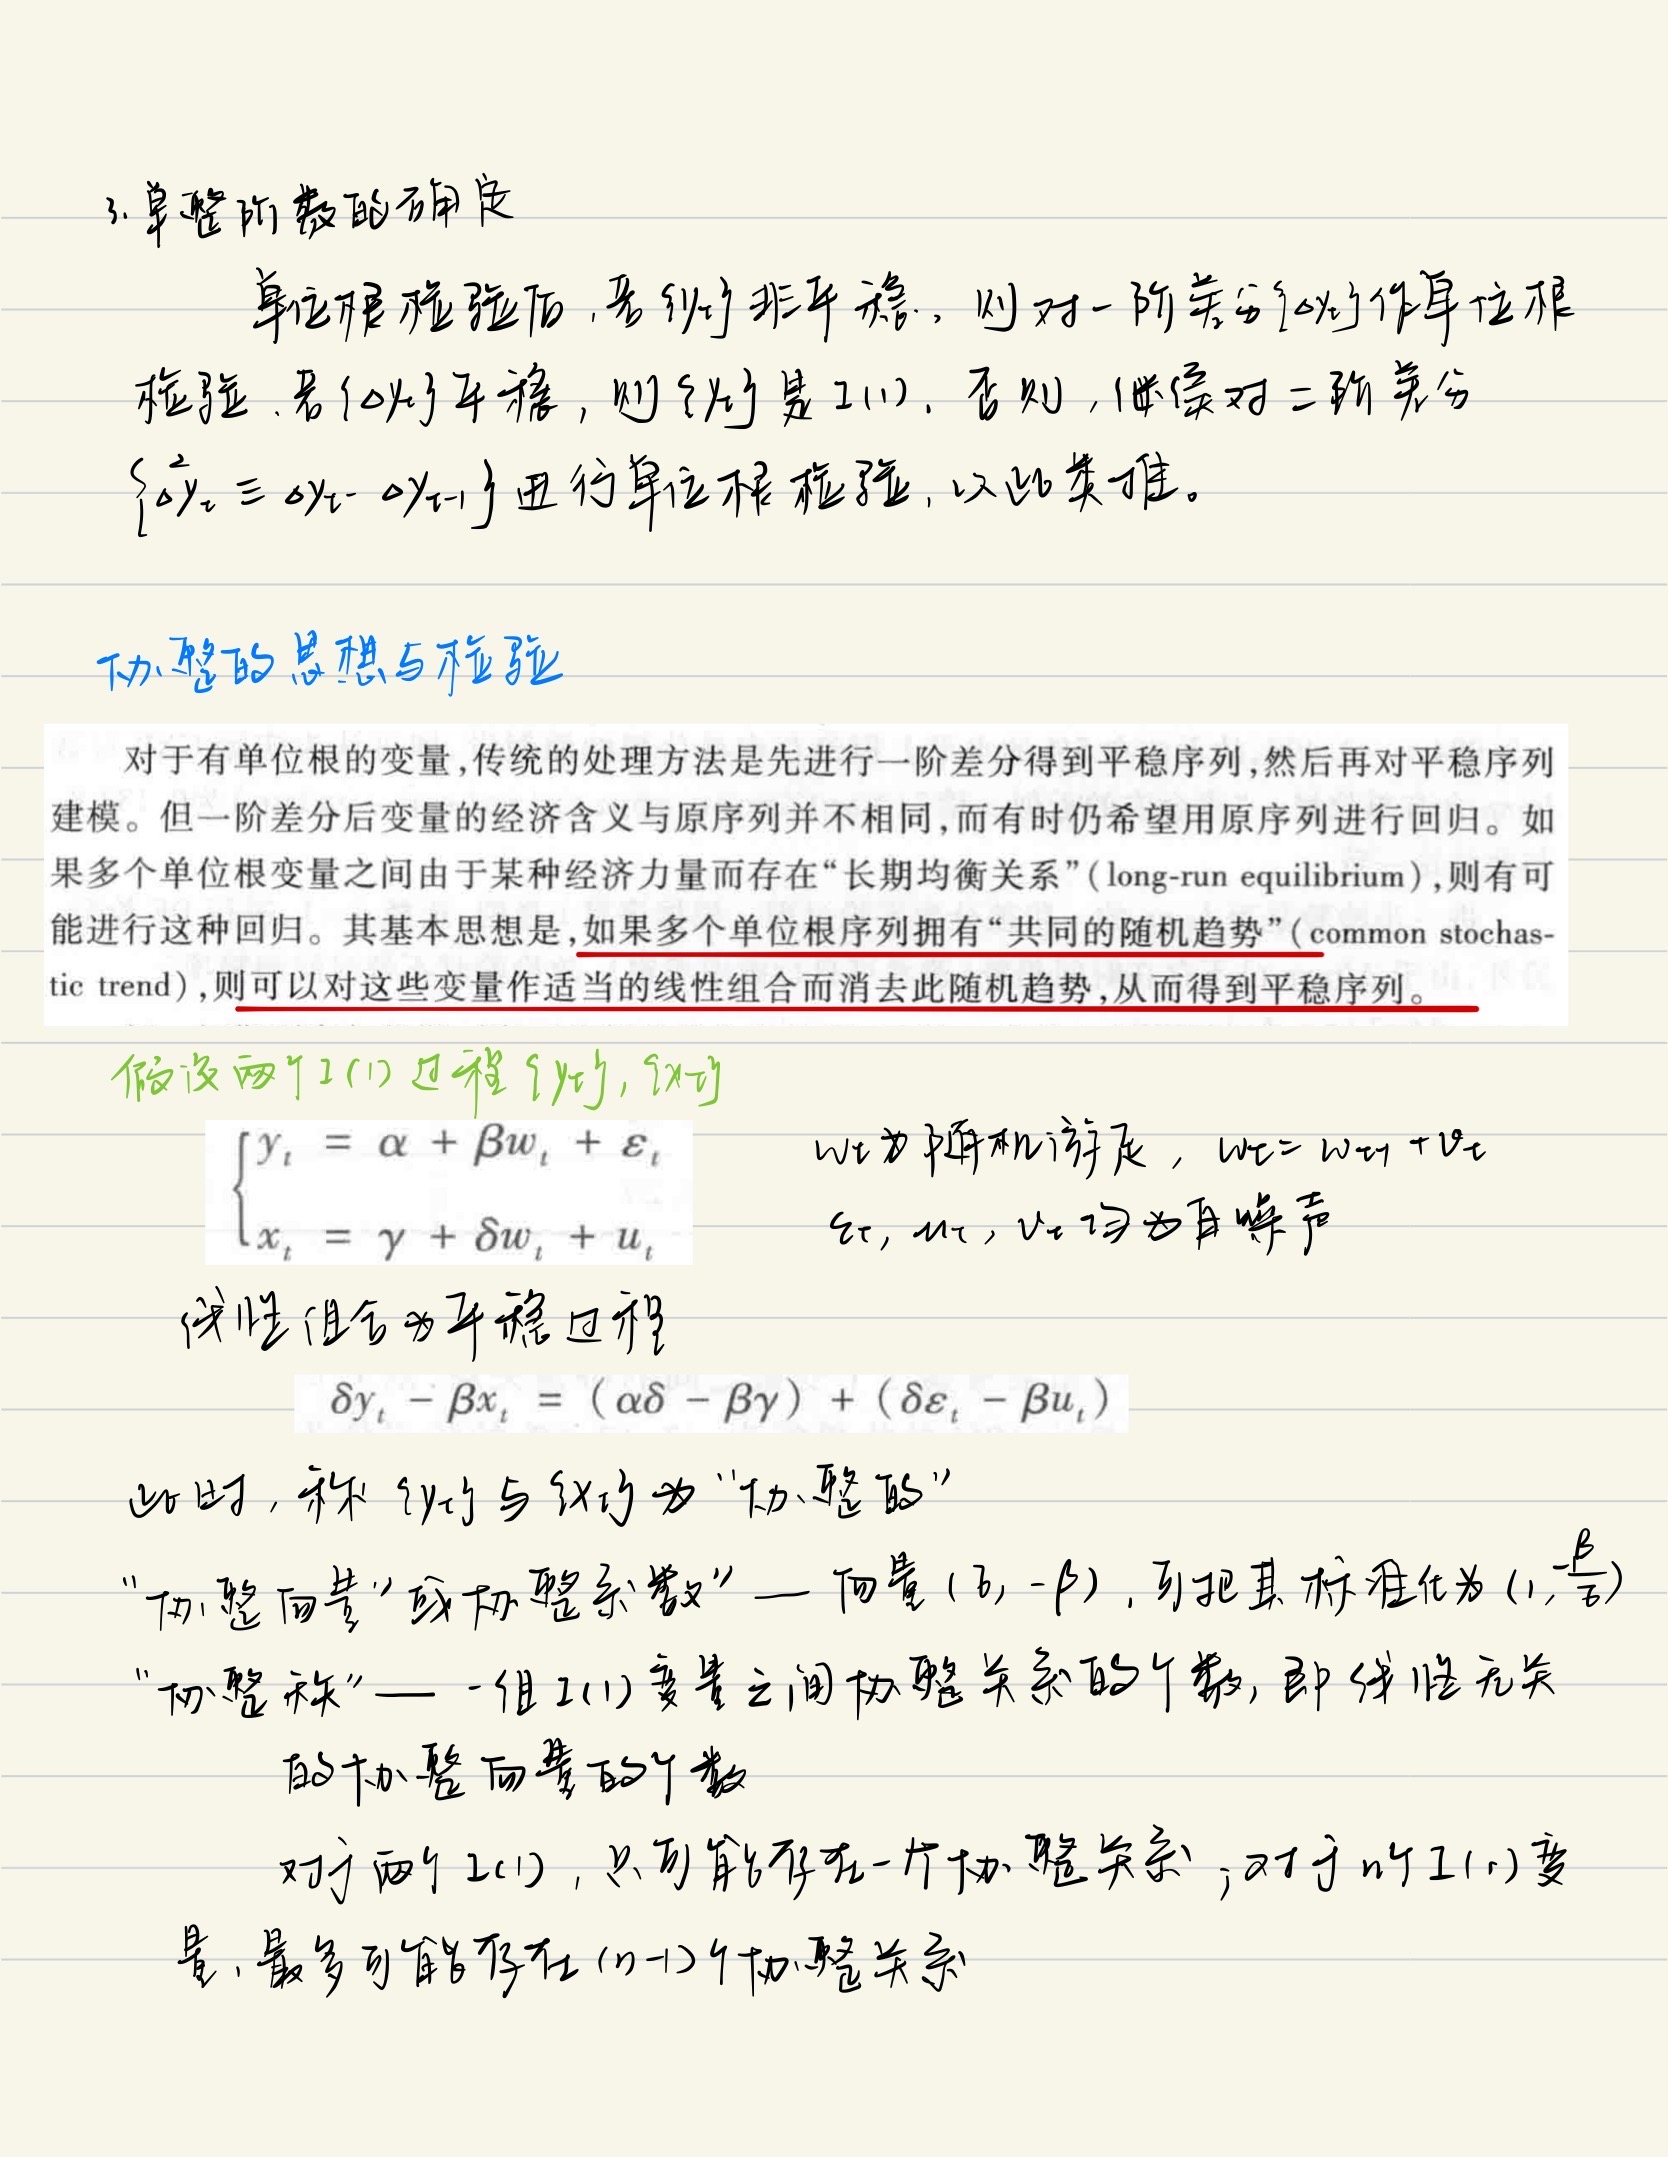 3. 单整阶数的确定
单位根检验后,若{yt}非平稳,则对一阶差分{Δyt}作单位根
检验.若{Δyt}平稳,则{yt}是I(1),否则,继续对二阶差分
{Δ²yt ≡ Δyt - Δyt-1}进行单位根检验,以此类推。
协整的思想与检验
对于有单位根的变量,传统的处理方法是先进行一阶差分得到平稳序列,然后再对平稳序列
建模。但一阶差分后变量的经济含义与原序列并不相同,而有时仍希望用原序列进行回归。如
果多个单位根变量之间由于某种经济力量而存在“长期均衡关系”(long-run equilibrium),则有可
能进行这种回归。其基本思想是,如果多个单位根序列拥有“共同的随机趋势”(common stochas-
tic trend),则可以对这些变量作适当的线性组合而消去此随机趋势,从而得到平稳序列。
假设两个I(1)过程{yt},{xt}
yt = α + βwt + εt
wt为随机游走, wt = wt-1 + vt
xt = γ + δwt + ut
εt, ut, vt均为白噪声
线性组合为平稳过程
δyt - βxt = (αδ - βγ) + (δεt - βut)
此时,称{yt}与{xt}为“协整的”
“协整向量”或“协整系数”— 向量(δ, -β),可把其标准化为(1, -β/δ)
“协整秩”— 一组I(1)变量之间协整关系的个数,即线性无关
的协整向量的个数
对于两个I(1),只可能存在一个协整关系;对于n个I(1)变
量,最多可能存在(n-1)个协整关系